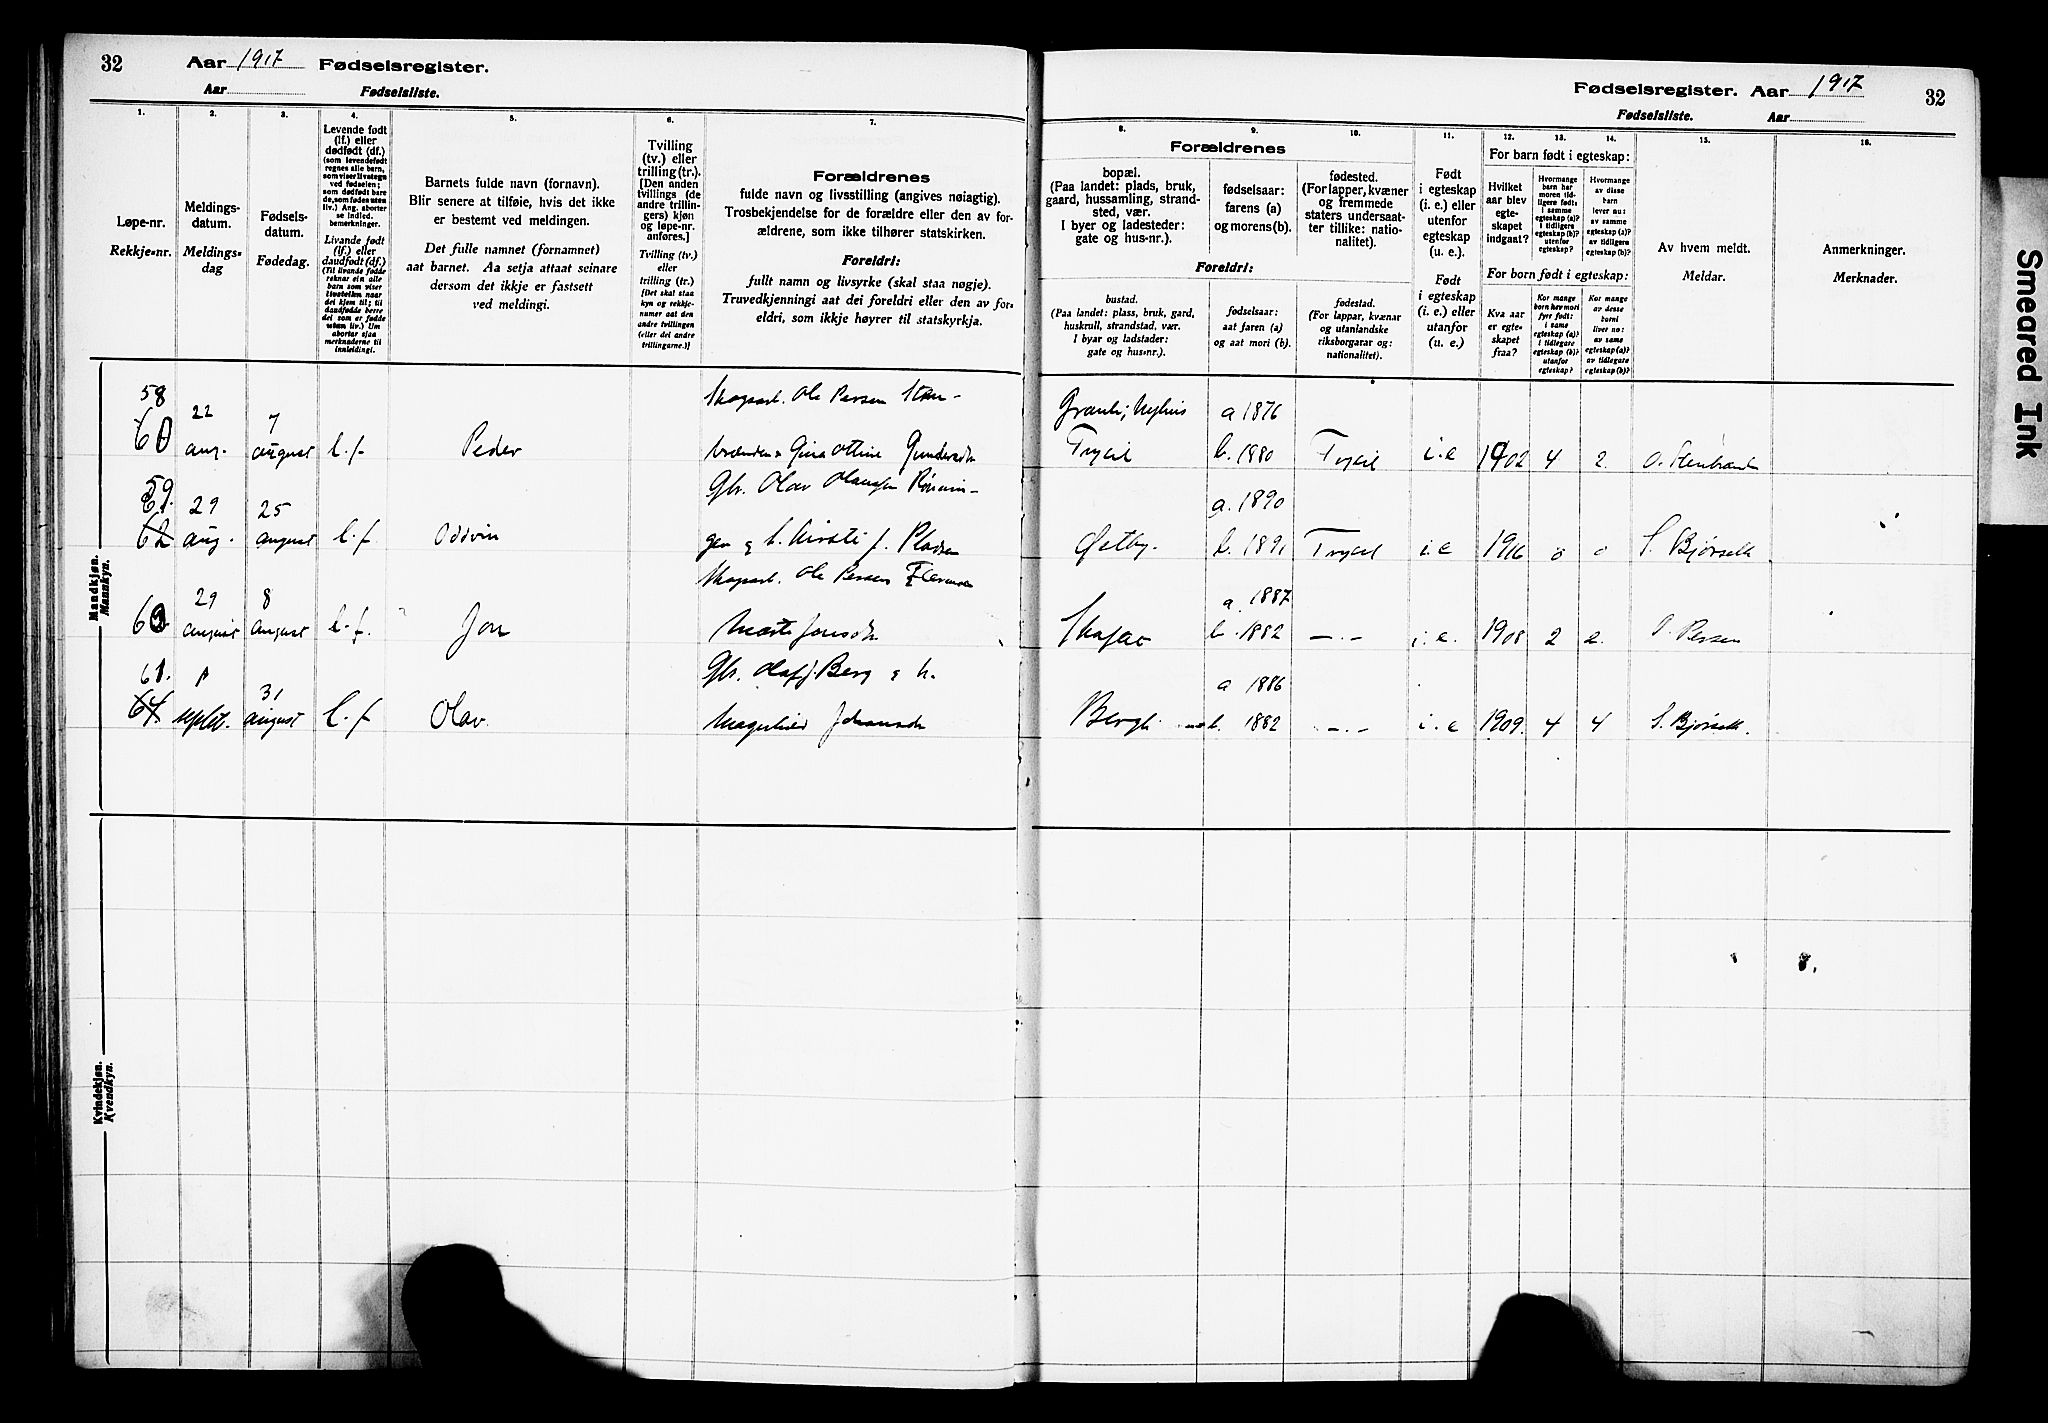 32
Aar 1917 Fødselsregister.
Aar Fødselsliste.
Fødselsregister. Aar 1917
32
Fødselsliste. Aar
1.
Løpe-nr.
Rekkje-nr.
2.
Meldings-
datum.
Meldings-
dag
3.
Fødsels-
datum.
Fødedag.
4.
Levende født
(lf.) eller
dødfødt (df.)
(som levendefødt
regnes alle barn,
som viser livstegn
ved fødselen;
som dødfødt bare
de, som fødes uten
liv.) Ang. aborter
se indled.
bemerkninger.
Livande født
(lf.) eller
daudfødt (df.)
(Til livande fødde
reknar ein alle
barn som viser
livsteikn naar
dei kjem til; til
daudfødde berre
dei som er fødde
utan liv.) Um
abortar sjaa
merknaderne til
innleidingi.
5.
Barnets fulde navn (fornavn).
Blir senere at tilføie, hvis det ikke
er bestemt ved meldingen.
Det fulle namnet (fornamnet)
aat barnet. Aa setja attaat seinare
dersom det ikkje er fastsett
ved meldingi.
6.
Tvilling
(tv.) eller
trilling (tr.).
[Den anden
tvillings (de
andre trillin-
gers) kjøn
og løpe-nr.
anføres.]
Tvilling (tv.)
eller
trilling (tr.)
[Det skal staa
kyn og rekkje-
numer aat den
andre tvillingen
(eller dei andre
trillingarne.)]
7.
Forældrenes
fulde navn og livsstilling (angives nøiagtig).
Trosbekjendelse for de forældre eller den av for-
ældrene, som ikke tilhører statskirken.
Foreldri:
fullt namn og livsyrke (skal staa nøgje).
Truvedkjenningi aat dei foreldri eller den av for-
eldri, som ikkje høyrer til statskyrkja.
8.
Forældrenes
bopæl.
(Paa landet: plads, bruk,
gaard, hussamling, strand-
sted, vær.
I byer og ladesteder:
gate og hus-nr.).
Foreldri:
bustad.
(Paa landet: plass, bruk, gard,
huskrull, strandstad, vær.
I byar og ladstader:
gate og hus-nr.).
9.
fødselsaar:
farens (a)
og morens (b).
fødselsaar:
aat faren (a)
og aat mori (b).
10.
fødested.
(For lapper, kvæner
og fremmede
staters undersaat-
ter tillike: natio-
nalitet).
fødestad.
(For lappar, kvænar
og utanlandske
riksborgarar og:
nationalitet).
11.
Født
i egteskap
(i. e.) eller
utenfor
egteskap
(u. e.).
Født
i egteskap
(i. e.) eller
utanfor
(u. e.)
12.
For barn født i egteskap:
Hvilket
aar blev
egte-
skapet
indgaat?
For born født i egteskap:
Kva aar
er egte-
skapet
fraa?
13.
Hvormange
barn har
moren tid-
ligere født:
i samme
egteskap (a)?
i tidligere
egteskap (b)?
utenfor
egteskap?
Kor mange
born hev mori
fyrr født:
i same
egteskap (a)?
i tidlegare
egteskap (b)?
utanfor
egteskap?
14.
Hvormange
av disse
barn
lever nu:
av samme
egteskap (a)?
av tidligere
egteskap (b)?
Kor mange
av desse
borni
liver no:
av same
egteskap (a)?
av tidlegare
egteskap (b)?
15.
Av hvem meldt.
Meldar.
16.
Anmerkninger.
Merknader.
Mandkjøn.
Mannkyn.
58
60
22
aug.
7
august
l. f.
Peder
Ole Persen
Gina Gundersdtr
Trysil
a 1876
b. 1880
Trysil
i. e
1902
4
2.
59.
61.
62
29
aug.
25
august
l. f.
Oddvin
Gbr. Olav Olausen
Kirsti f. Pladsen
Østby.
a. 1890
b. 1891
Trysil
i. e
1916
o
o
S. Bjørseth
60
29
august
8
august
l. f.
Jon
Skogsarb. Ole Persen
Marte Jonsdtr
a. 1887
b. 1882
—.—
i. e.
1908
2
2.
O. Persen
61.
64.
septbr.
31
august
l. f
Olav.
Gbr. Olaf J. Berg
Magnhild Johansdtr
a 1886
b. 1882
—.—
i. e
1909.
4
4
S. Bjørseth.
Kvindekjøn.
Kvendkyn.
Smeared Ink